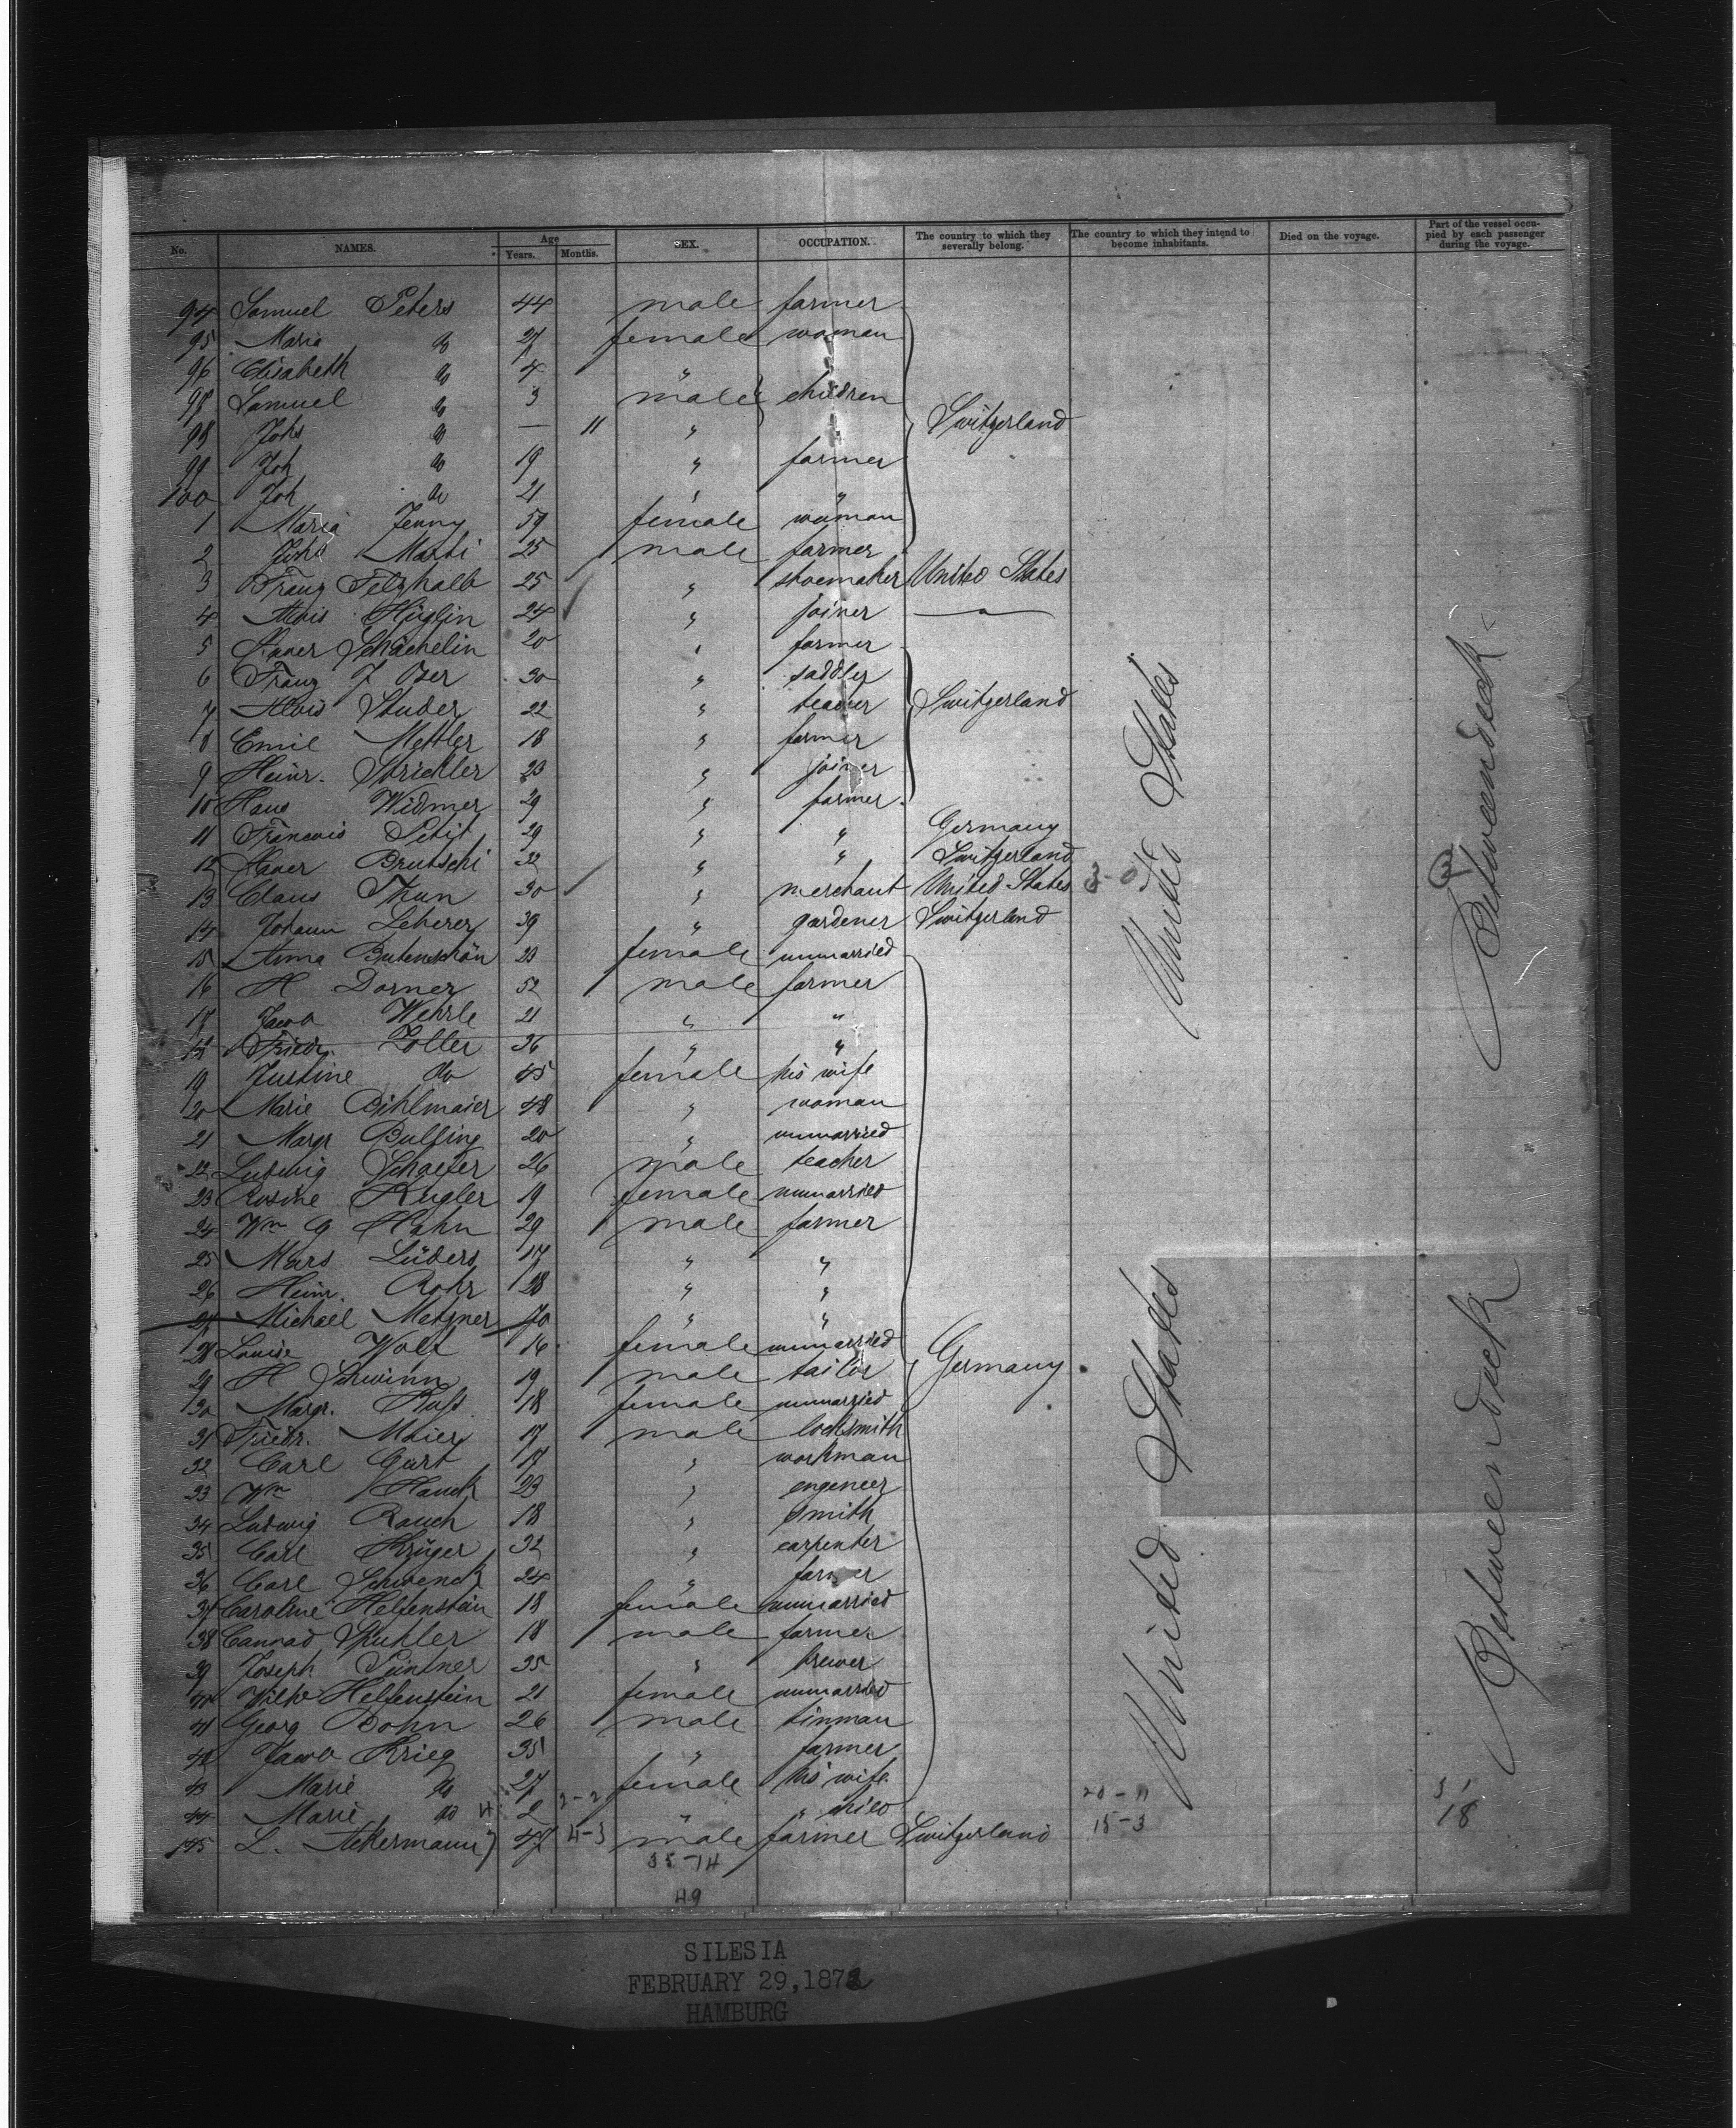 No. NAMES. Age Years. Months. SEX. OCCUPATION. The country to which they severally belong. The country to which they intend to become inhabitants. Died on the voyage. Part of the vessel occupied by each passenger during the voyage.
94 Samuel Peters 44 male farmer
95 Maria do 27 female woman
96 Elisabeth do 4 "
97 Samuel do 3 male children
98 Johs do — 11 " Switzerland
99 Joh do 19 " farmer
100 Joh do 21 " "
1 Maria Jenny 59 female woman
2 Johs Marti 25 male farmer
3 Franz Felzhalb 25 " shoemaker United States
4 Alois Hüglin 24 " joiner —"—
5 Xaver Schächelin 20 " farmer
6 Franz J Oser 30 " saddler
7 Alois Studer 22 " teacher Switzerland
8 Emil Mettler 18 " farmer
9 Heinr. Strickler 23 " joiner
10 Hans Widmer 29 " farmer
11 Francois Petit 29 " " Germany
12 Xaver Brutschi 32 " " Switzerland
13 Claus Thun 30 " merchant United States
14 Johann Leherer 39 " gardener Switzerland
15 Anna Butenschön 23 female unmarried
16 H Dorner 52 male farmer
17 Jacob Wehrle 21 " "
18 Friedr. Zoller 36 " "
19 Justine do 45 female his wife
20 Marie Bihlmaier 48 " woman
21 Margr Bulfing 20 " unmarried
22 Ludwig Schaefer 26 male teacher
23 Rosine Kugler 19 female unmarried
24 Wm G Hahn 29 male farmer
25 Mars Lüders 17 " "
26 Heinr. Rohr 28 " "
27 Michael Metzner 40 " "
28 Louise Wolf 16 female unmarried
29 H Schwinn 19 male tailor Germany
30 Margr. Ruf 18 female unmarried
31 Friedr. Maier 17 male locksmith
32 Carl Gurt 17 " workman
33 Wm Hauck 23 " engeneer
34 Ludwig Rauch 18 " smith
35 Carl Krüger 32 " carpenter
36 Carl Schwenck 24 " farmer
37 Caroline Helfenstein 18 female unmarried
38 Conrad Spuhler 18 male farmer
39 Joseph Pintner 35 " brewer
40 Wilhe Helfenstein 21 female unmarried
41 Georg Bohn 26 male tinman
42 Jacob Krieg 35 " farmer
43 Marie do 27 female his wife
44 Marie do 2 " child
145 L. Ackermann 47 male farmer Switzerland
United States
United States
Betweendeck
Betweendeck
4 2-2
4-3
35-14
49
20-11
15-3
18
SILESIA
FEBRUARY 29, 1872
HAMBURG